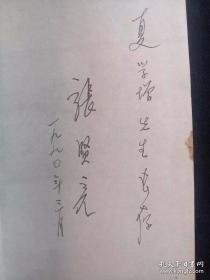 夏学增先生惠存
張贤亮
一九九〇年三月